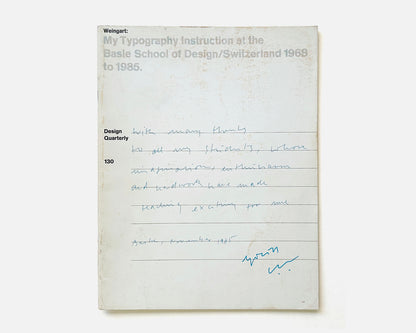 Weingart:
My Typography Instruction at the
Basle School of Design/Switzerland 1968
to 1985.
Design
Quarterly
130
With many thanks
to all my students, whose
inspiration, enthusiasm
and hardwork have made
teaching exciting for me
Basle, November 1985